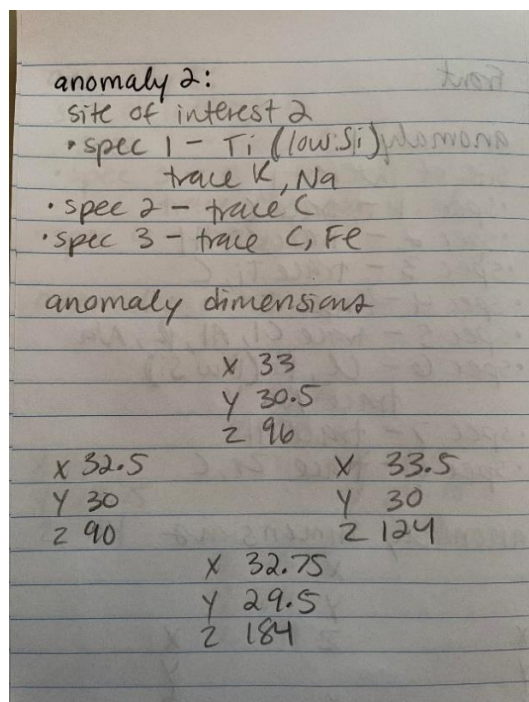 anomaly 2:
site of interest 2
• spec 1 - Ti (low Si)
trace K, Na
• spec 2 - trace C
• spec 3 - trace C, Fe
anomaly dimensions
X 33
Y 30.5
Z 96
X 32.5
Y 30
Z 90
X 33.5
Y 30
Z 124
X 32.75
Y 29.5
Z 184